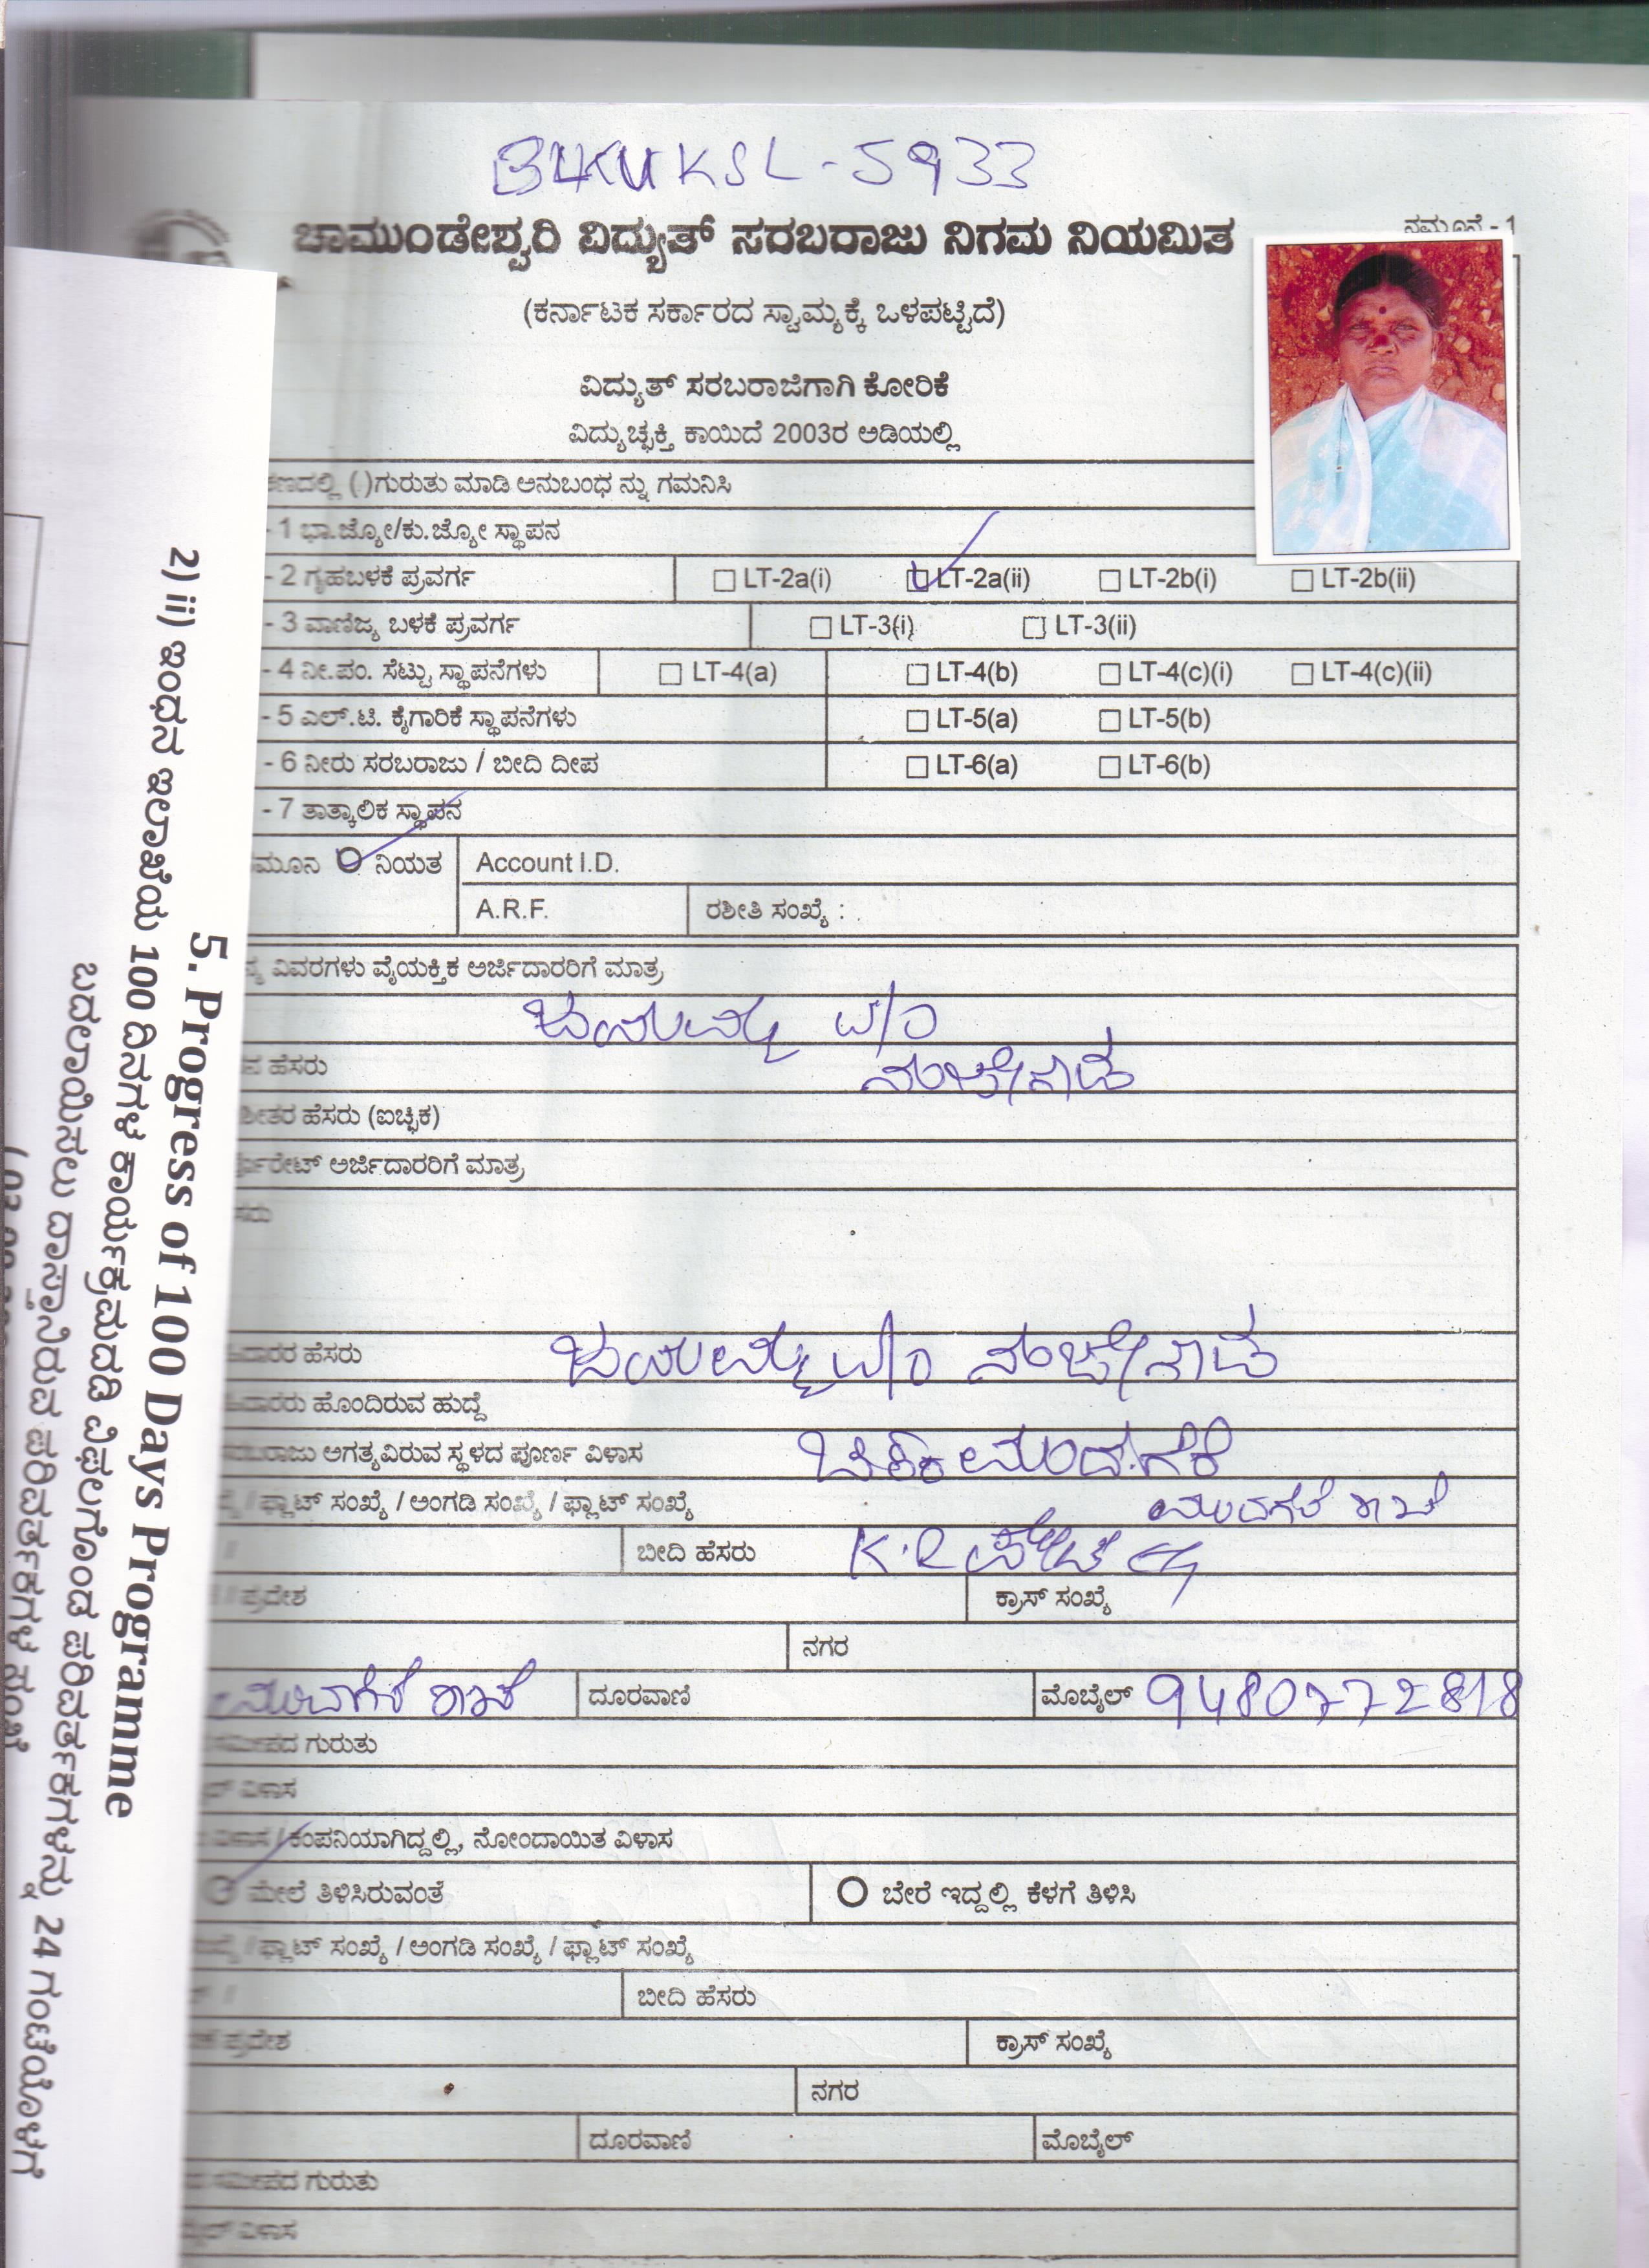 BLKUKSL-5933
ನಮೂನೆ - 1
ಚಾಮುಂಡೇಶ್ವರಿ ವಿದ್ಯುತ್ ಸರಬರಾಜು ನಿಗಮ ನಿಯಮಿತ
(ಕರ್ನಾಟಕ ಸರ್ಕಾರದ ಸ್ವಾಮ್ಯಕ್ಕೆ ಒಳಪಟ್ಟಿದೆ)
ವಿದ್ಯುತ್ ಸರಬರಾಜಿಗಾಗಿ ಕೋರಿಕೆ
ವಿದ್ಯುಚ್ಛಕ್ತಿ ಕಾಯಿದೆ 2003ರ ಅಡಿಯಲ್ಲಿ
ಕಣದಲ್ಲಿ ( )ಗುರುತು ಮಾಡಿ ಅನುಬಂಧ ನ್ನು ಗಮನಿಸಿ
- 1 ಭಾ.ಜ್ಯೋ/ಕು.ಜ್ಯೋ ಸ್ಥಾಪನ
- 2 ಗೃಹಬಳಕೆ ಪ್ರವರ್ಗ LT-2a(i) LT-2a(ii) LT-2b(i) LT-2b(ii)
- 3 ವಾಣಿಜ್ಯ ಬಳಕೆ ಪ್ರವರ್ಗ LT-3(i) LT-3(ii)
- 4 ನೀ.ಪಂ. ಸೆಟ್ಟು ಸ್ಥಾಪನೆಗಳು LT-4(a) LT-4(b) LT-4(c)(i) LT-4(c)(ii)
- 5 ಎಲ್.ಟಿ. ಕೈಗಾರಿಕೆ ಸ್ಥಾಪನೆಗಳು LT-5(a) LT-5(b)
- 6 ನೀರು ಸರಬರಾಜು / ಬೀದಿ ದೀಪ LT-6(a) LT-6(b)
- 7 ತಾತ್ಕಾಲಿಕ ಸ್ಥಾಪನ
ಮೂನ ನಿಯತ Account I.D.
A.R.F. ರಶೀತಿ ಸಂಖ್ಯೆ :
ವಿವರಗಳು ವೈಯಕ್ತಿಕ ಅರ್ಜಿದಾರರಿಗೆ ಮಾತ್ರ
ಜಯಮ್ಮ W/O
ಹೆಸರು ನಂಜೇಗೌಡ
ಹೆಸರು (ಐಚ್ಛಿಕ)
ಅರ್ಜಿದಾರರಿಗೆ ಮಾತ್ರ
ಸರು
ಹೆಸರು ಜಯಮ್ಮ W/O ನಂಜೇಗೌಡ
ಹೊಂದಿರುವ ಹುದ್ದೆ
ಅಗತ್ಯವಿರುವ ಸ್ಥಳದ ಪೂರ್ಣ ವಿಳಾಸ
/ ಫ್ಲಾಟ್ ಸಂಖ್ಯೆ / ಅಂಗಡಿ ಸಂಖ್ಯೆ / ಫ್ಲಾಟ್ ಸಂಖ್ಯೆ
ಬೀದಿ ಹೆಸರು K.R ಪೇಟೆ
ಪ್ರದೇಶ ಕ್ರಾಸ್ ಸಂಖ್ಯೆ
ನಗರ
ದೂರವಾಣಿ ಮೊಬೈಲ್ 9480772818
ಸಮೀಪದ ಗುರುತು
ವಿಳಾಸ
ವಿಳಾಸ / ಕಂಪನಿಯಾಗಿದ್ದಲ್ಲಿ, ನೋಂದಾಯಿತ ವಿಳಾಸ
ಮೇಲೆ ತಿಳಿಸಿರುವಂತೆ ಬೇರೆ ಇದ್ದಲ್ಲಿ ಕೆಳಗೆ ತಿಳಿಸಿ
/ ಫ್ಲಾಟ್ ಸಂಖ್ಯೆ / ಅಂಗಡಿ ಸಂಖ್ಯೆ / ಫ್ಲಾಟ್ ಸಂಖ್ಯೆ
ಬೀದಿ ಹೆಸರು
ಪ್ರದೇಶ ಕ್ರಾಸ್ ಸಂಖ್ಯೆ
ನಗರ
ದೂರವಾಣಿ ಮೊಬೈಲ್
ಸಮೀಪದ ಗುರುತು
ವಿಳಾಸ
5. Progress of 100 Days Programme
2) ii) ಇಂಧನ ಇಲಾಖೆಯ 100 ದಿನಗಳ ಕಾರ್ಯಕ್ರಮದಡಿ ವಿಫಲಗೊಂಡ ಪರಿವರ್ತಕಗಳನ್ನು 24 ಗಂಟೆಯೊಳಗೆ
ಬದಲಾಯಿಸಲು ದಾಸ್ತಾನಿರುವ ಪರಿವರ್ತಕಗಳ ಸಂಖ್ಯೆ